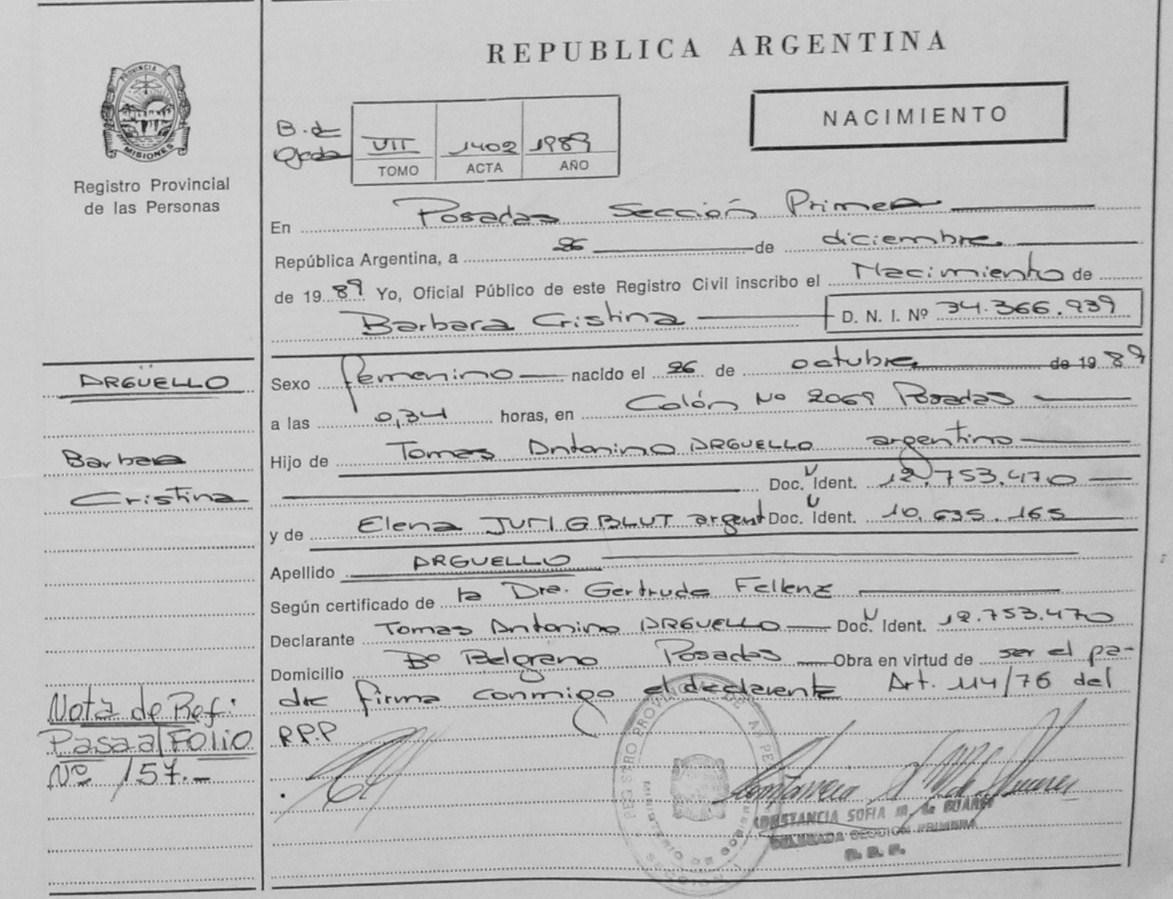 REPUBLICA ARGENTINA
PROVINCIA DE
MISIONES
Registro Provincial
de las Personas
NACIMIENTO
B. de
VII 1402 1989
TOMO ACTA AÑO
En Posadas Sección Primera
República Argentina, a 26 de diciembre
de 1989 Yo, Oficial Público de este Registro Civil inscribo el Nacimiento de
Barbara Cristina D. N. I. Nº 34.366.939
ARGÜELLO
Barbara
Cristina
Sexo femenino nacido el 26 de octubre de 1989
a las 0,34 horas, en Colón Nº 2069 Posadas
Hijo de Tomas Antonino ARGUELLO argentino
Doc. U Ident. 12.753.470
y de Elena JUNGBLUT argent Doc. U Ident. 10.635.165
Apellido ARGUELLO
Según certificado de la Dra. Gertrude Fellenz
Declarante Tomas Antonino ARGUELLO Doc. U Ident. 12.753.470
Domicilio Bº Belgrano Posadas Obra en virtud de ser el pa-
dre firma conmigo el declarante Art. 114/76 del
RPP
Nota de Ref:
Pasa al FOLIO
Nº 157.-
CONSTANCIA SOFIA M. de
DELEGADA SECCION PRIMERA